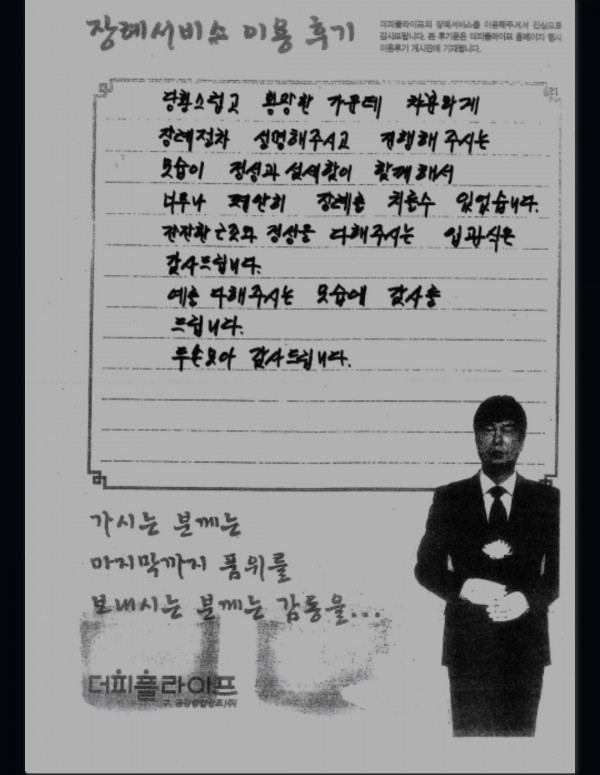 장례서비스 이용 후기
더피플라이프의 장례서비스를 이용해주셔서 진심으로
감사드립니다. 본 후기문은 더피플라이프 홈페이지 행사
이용후기 게시판에 기재됩니다.
당황스럽고 황망한 가운데 차분하게
장례절차 설명해주시고 진행해 주시는
모습이 정성과 섬세함이 함께해서
너무나 편안히 장례를 치를수 있었습니다.
잔잔한 곳과 정성을 다해주시는 입관식은
감사드립니다.
예를 다해주시는 모습에 감사를
드립니다.
두손모아 감사드립니다.
가시는 분께는
마지막까지 품위를
보내시는 분께는 감동을...
더피플라이프
구. 금강종합상조(주)